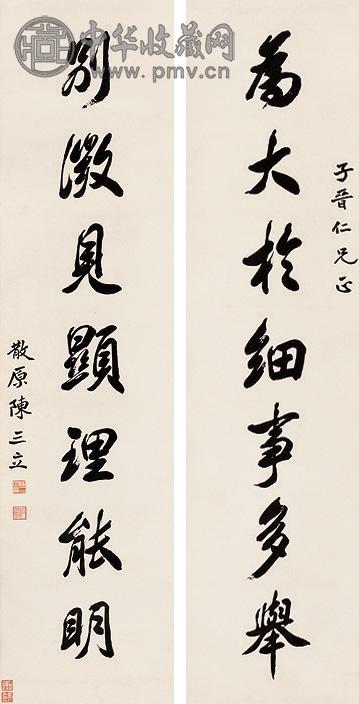 中华收藏网
www.pmv.cn
子晉仁兄正
為大於細事多舉
別微見顯理能明
散原陳三立